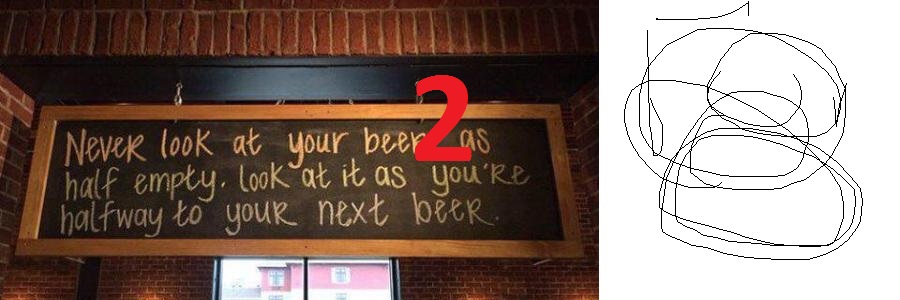 Never look at your beer as
half empty. look at it as you're
halfway to your next beer.
2